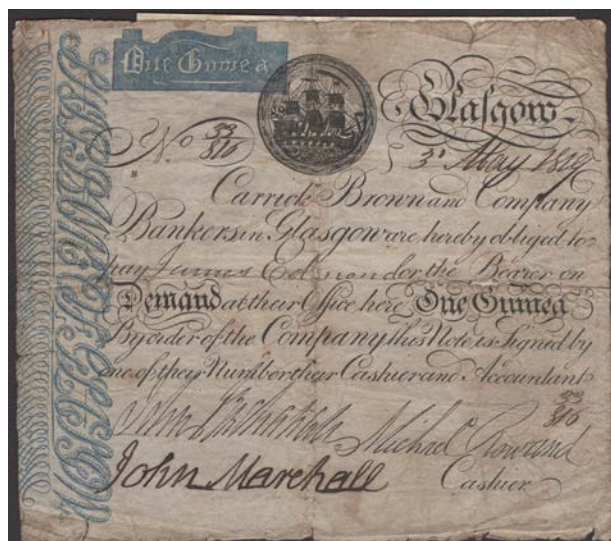 One Guinea
Glasgow
No 33/816
3d May 1819
B
Carrick Brown and Company
Bankers in Glasgow are hereby obliged to
pay James or the Bearer on
Demand at their Office here One Guinea
By order of the Company this Note is Signed by
one of their Number their Cashier and Accountant
33/816
John Michael Rowand
John Marshall Cashier